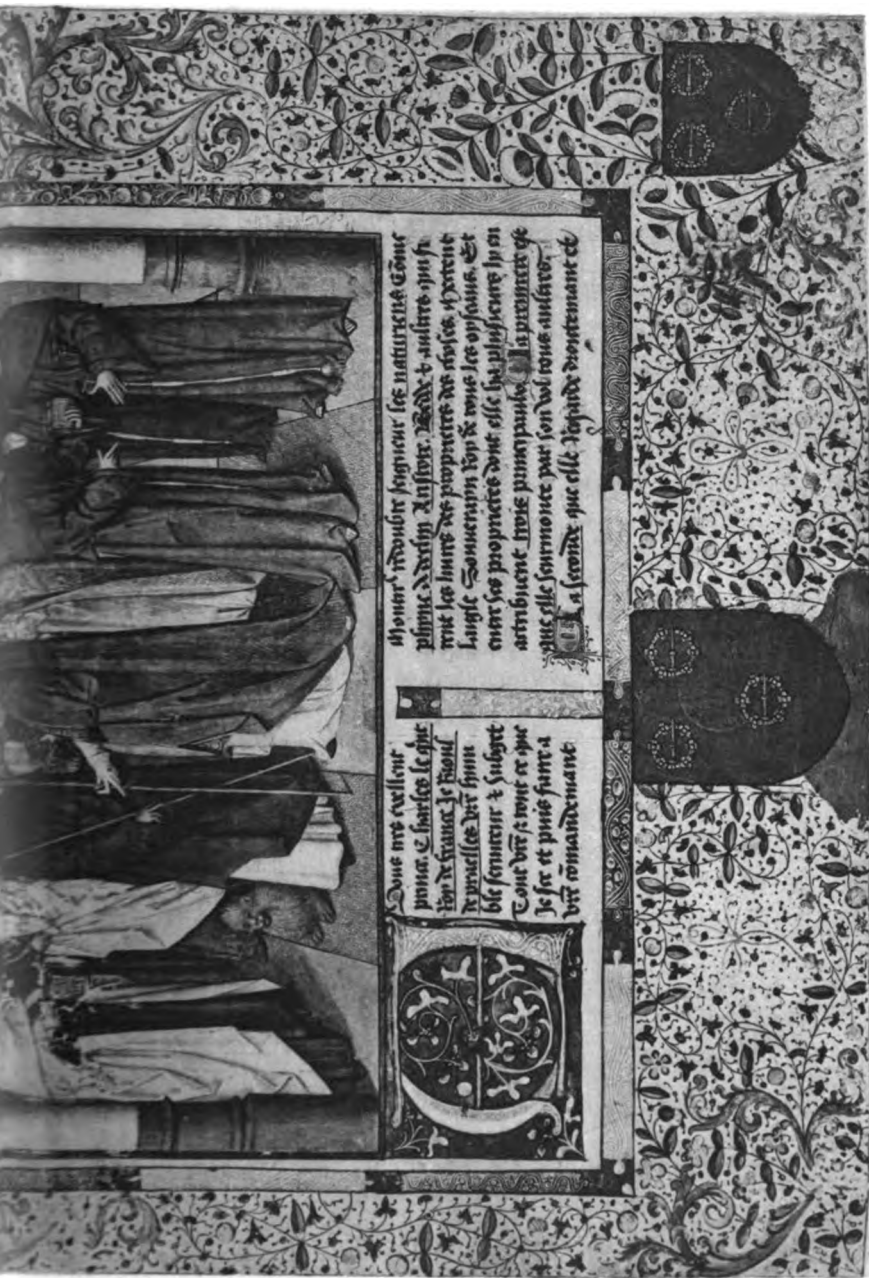 A Vous tres excellent
prince Charles le quit
roy de france Je Raoul
de praelles vr̄e hum
ble serviteur & subget
Tout vr̄e & tout ce que
Je sce et puis faire a
vr̄e cōmandemant
redoubte seigneur les naturiens Cōme
plinne Adelin Aristote. Bede & aultres qui fi
rent les liures des proprietes des choses mettent
laigle Souuerayn roy de tous les oyseaus. Et
entre ses proprietes dont elle ha plusieurs luy en
attribuent trois principaux La premiere est
que elle seurmonte par son vol tous aultres
La seconde que elle regarde droitemant et